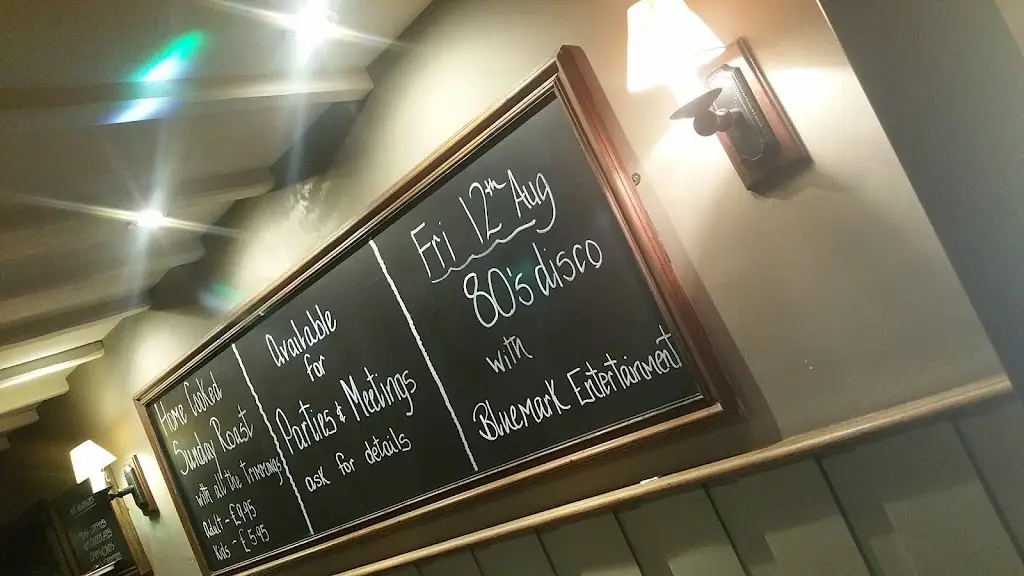 Home Cooked
Sunday Roast
with all the trimmings
Adult - £9.95
Kids - £5.95
Available
for
Parties & Meetings
ask for details
Fri 12th Aug
80's disco
with
Bluemark Entertainment